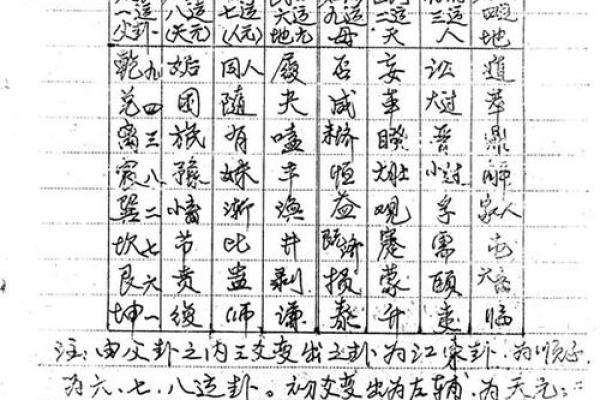 一运 八运 七运 六运 九运 二运 三运 四运
父卦 (天元) (人元) 地元 母 天 人 地
乾九 姤 同人 履 否 妄 讼 遁
兑四 困 随 夬 咸 革 大过 萃
离三 旅 有 嗑 未济 睽 晋 鼎
震八 豫 妹 丰 恒 大壮 小过 解
巽二 小畜 渐 涣 益 观 孚 家人
坎七 节 比 井 既济 蹇 需 屯
艮六 贲 蛊 剥 损 蒙 颐 大畜
坤一 復 师 谦 泰 升 夷 临
注：由父卦之内三爻变出之卦为江東卦，为顺子
为六、七、八运卦。初爻变出为左辅，为天元；二